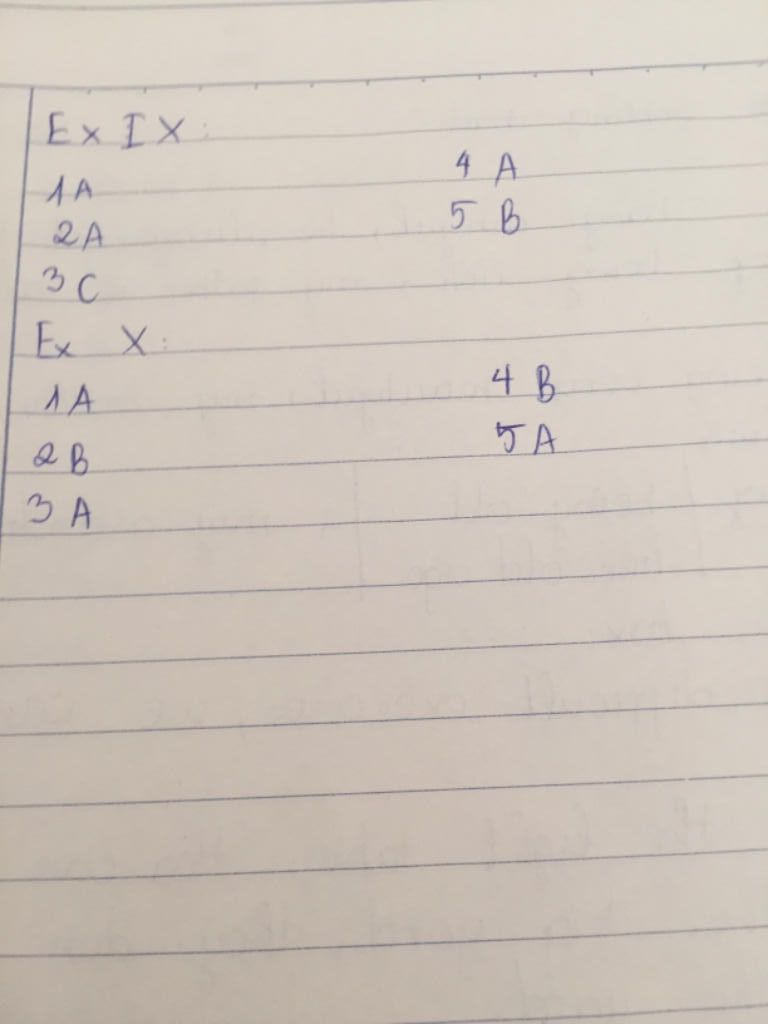 Ex IX:
1A
2A
3C
4 A
5 B
Ex X:
1A
2B
3 A
4 B
5A